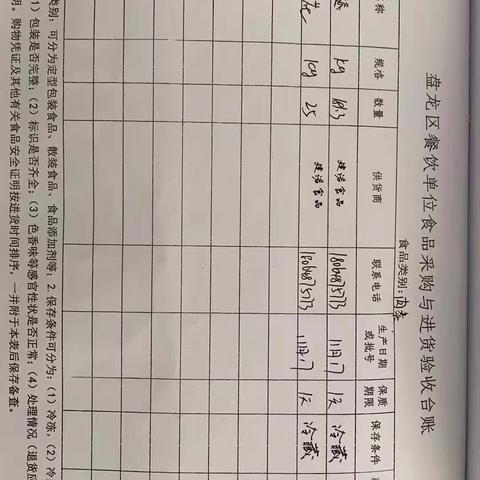 盘龙区餐饮单位食品采购与进货验收台账
食品类别:肉类
称 规格 数量 供货商 联系电话 生产日期或批号 保质期限 保存条件
kg 食品 11月17 1天 冷藏
kg 25 食品 11月17 1天 冷藏
类别:可分为定型包装食品、散装食品、食品添加剂等;2.保存条件可分为:(1)冷冻,(2)冷
1)包装是否完整;(2)标识是否齐全;(3)色香味等感官性状是否正常;(4)处理情况(退货应
明。购物凭证及其他有关食品安全证明按进货时间排序,一并附于本表后保存备查。